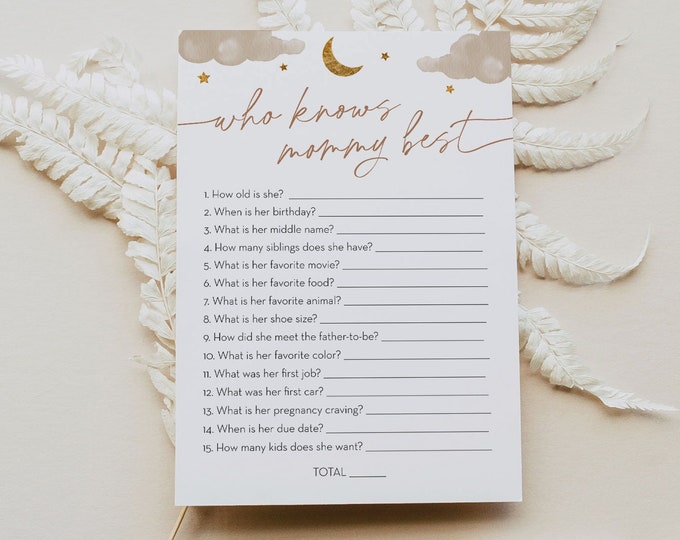 who knows
mommy best
1. How old is she? ____________________
2. When is her birthday? ____________________
3. What is her middle name? ____________________
4. How many siblings does she have? ____________________
5. What is her favorite movie? ____________________
6. What is her favorite food? ____________________
7. What is her favorite animal? ____________________
8. What is her shoe size? ____________________
9. How did she meet the father-to-be? ____________________
10. What is her favorite color? ____________________
11. What was her first job? ____________________
12. What was her first car? ____________________
13. What is her pregnancy craving? ____________________
14. When is her due date? ____________________
15. How many kids does she want? ____________________
TOTAL ______